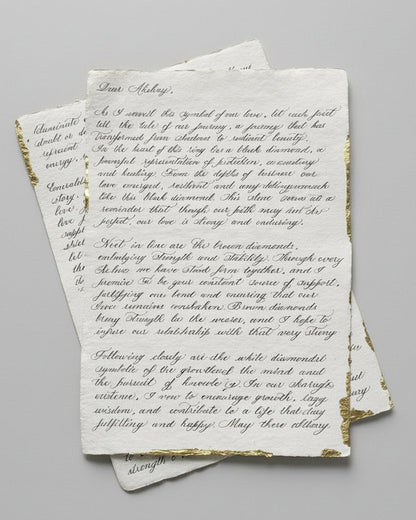 Dear Akshay,
As I unveil this symbol of our love, let each facet
tell the tale of our journey, a journey that has
transformed from shadows to radiant beauty.
In the heart of this ring lies a black diamond, a
powerful representation of protection,
and healing. From the depths of our
love emerged, resilient and
like this black diamond. This stone serves as a
reminder that though our path may not be
perfect, our love is strong and enduring.
Next in line are the brown diamonds,
embodying strength and stability. Through every
we have stood firm together, and I
promise to be your constant source of support,
fortifying our bond and ensuring that our
love remains unshaken. Brown diamonds
bring strength to the wearer, and I hope to
infuse our relationship with that very strong
Following closely are the white diamonds
symbolic of the growth of the mind and
the pursuit of In our
existence, I vow to encourage growth,
wisdom, and contribute to a life that
fulfilling and happy. May there
illuminate
doubt or
represent
energy,
Emerald
story.
love
love
supp
shie
let
to
strength o